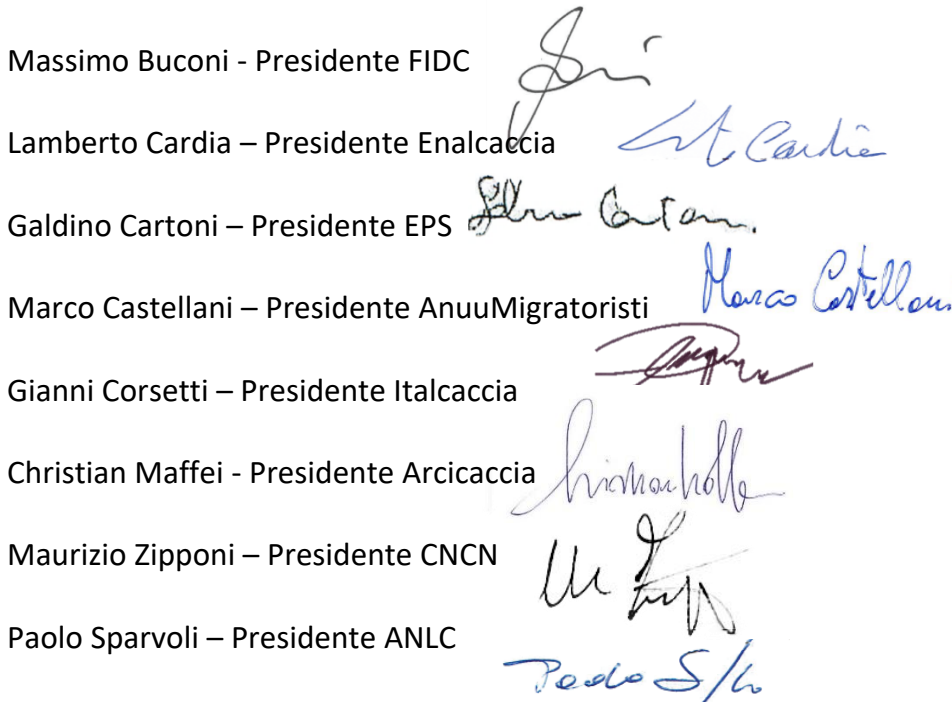 Massimo Buconi - Presidente FIDC
Lamberto Cardia – Presidente Enalcaccia
Cardia
Galdino Cartoni – Presidente EPS
Marco Castellani – Presidente AnuuMigratoristi
Marco Castellani
Gianni Corsetti – Presidente Italcaccia
Christian Maffei - Presidente Arcicaccia
Maurizio Zipponi – Presidente CNCN
Paolo Sparvoli – Presidente ANLC
Paolo